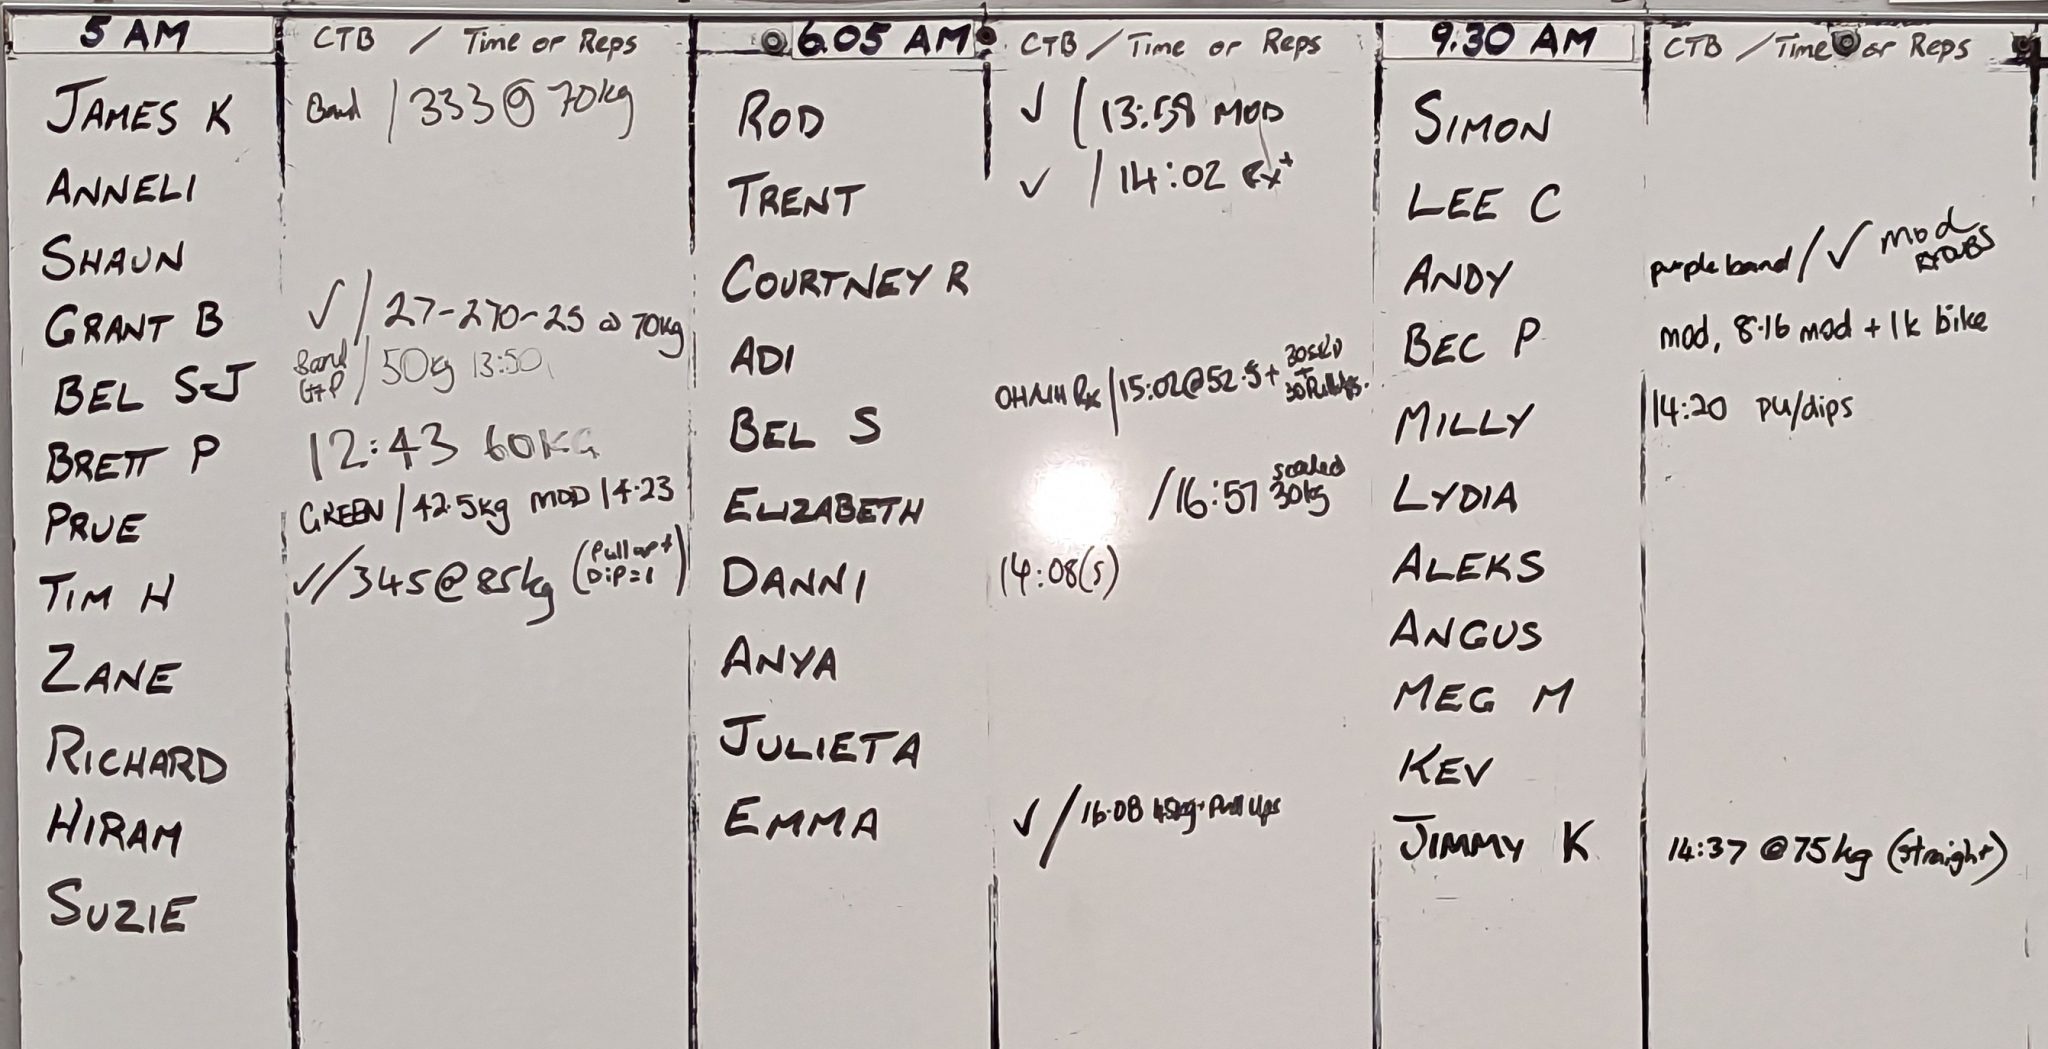 5 AM CTB / Time or Reps
JAMES K Band / 333 @ 70kg
ANNELI
SHAUN
GRANT B ✓ / 27-270-25 @ 70kg
BEL S-J Band G+P / 50kg 13:50
BRETT P 12:43 60KG
PRUE GREEN / 42.5kg MOD 14.23
TIM H ✓ / 345 @ 85kg (Pull up + Dip = 1)
ZANE
RICHARD
HIRAM
SUZIE
6.05 AM CTB / Time or Reps
ROD ✓ / 13:58 MOD
TRENT ✓ / 14:02 Rx+
COURTNEY R
ADI
BEL S Rx / 15:02 @ 52.5 +
ELIZABETH / 16:57 scaled 30kg
DANNI 14:08 (s)
ANYA
JULIETA
EMMA ✓ / 16.08 45kg + Pull Ups
9.30 AM CTB / Time or Reps
SIMON
LEE C
ANDY purple band / ✓ mod
BEC P mod, 8.16 mod + 1k bike
MILLY 14:20 PU/dips
LYDIA
ALEKS
ANGUS
MEG M
KEV
JIMMY K 14:37 @ 75kg (straight)